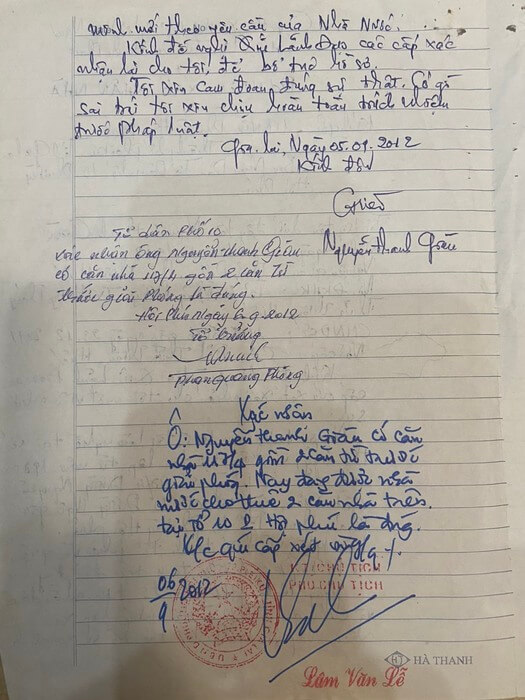 minh mới theo yêu cầu của Nhà Nước.
Kính đề nghị Quí Lãnh Đạo các cấp xác
nhận lại cho tôi, để bổ trợ hồ sơ.
Tôi xin cam đoan đúng sự thật. Có gì
sai trái tôi xin chịu hoàn toàn trách nhiệm
trước pháp luật.
Gia lai, Ngày 05.09.2012
Kính đơn
Giàu
Nguyễn thanh Giàu
Tổ dân phố 10
xác nhận ông Nguyễn thanh Giàu
có căn nhà 117/4 gồm 2 căn từ
trước giải phóng là đúng.
Hội Phú ngày 6.9.2012
Tổ trưởng
Phan Quang Phóng
Xác nhận
Ô: Nguyễn thanh Giàu có căn
nhà 117/4 gồm 2 căn từ trước
giải phóng. Nay đang được nhà
nước cho thuê 2 căn nhà trên.
tại Tổ 10 P Hội phú là đúng.
K/c quí cấp xét
06/9 2012
K.T CHỦ TỊCH
PHÓ CHỦ TỊCH
HÀ THANH
Lâm Văn Lễ